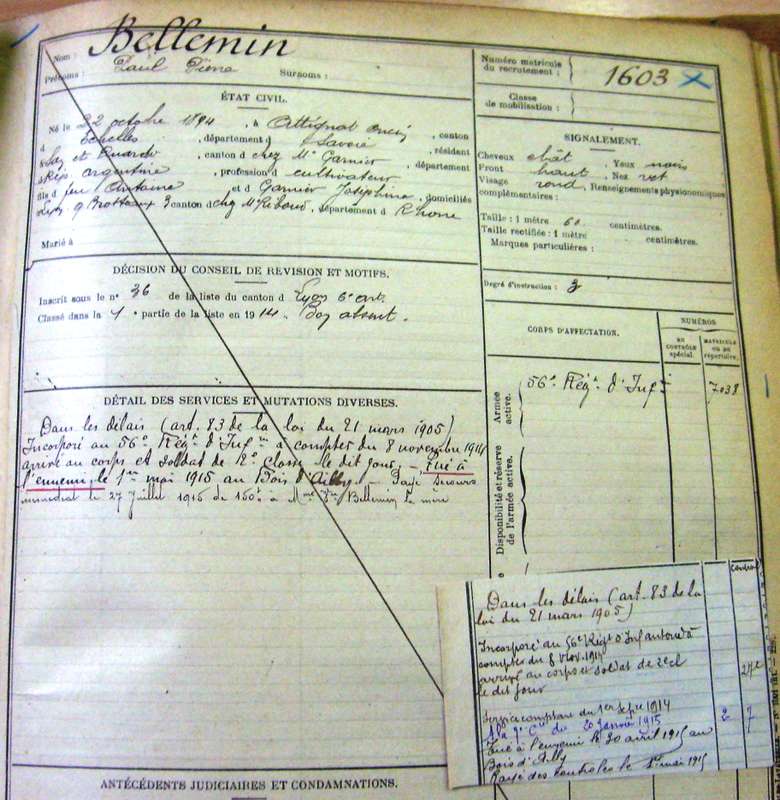 Nom : Bellemin
Prénoms : Paul Pierre Surnoms :
Numéro matricule du recrutement : 1603
Classe de mobilisation :
ÉTAT CIVIL.
Né le 22 octobre 1894, à Attignat Oncin, canton
d Echelles, département d Savoie, résidant
à, canton d chez Mr Garnier, département
Rép. argentine, profession d cultivateur
fils d feu Antoine et d Garnier Joséphine, domiciliés
Lyon 9 Brotteaux 3 canton d chez Mr Riboud, département d Rhône
Marié à
SIGNALEMENT.
Cheveux chât, Yeux noirs
Front haut, Nez rect
Visage rond, Renseignements physionomiques
complémentaires :
Taille : 1 mètre 60 centimètres.
Taille rectifiée : 1 mètre centimètres.
Marques particulières :
Degré d'instruction : 3
DÉCISION DU CONSEIL DE REVISION ET MOTIFS.
Inscrit sous le n° 36 de la liste du canton d Lyon 6e art.
Classé dans la 1e partie de la liste en 1914. Bon absent.
CORPS D'AFFECTATION.
NUMÉROS
EN CONTRÔLE spécial.
MATRICULE OU DU répertoire.
Armée active.
56e Régt d'Inf
7038
Disponibilité et réserve de l'armée active.
DÉTAIL DES SERVICES ET MUTATIONS DIVERSES.
Dans les délais (art. 83 de la loi du 21 mars 1905)
Incorporé au 56e Régt d'Infie à compter du 8 novembre 1914
arrivé au corps et soldat de 2e classe le dit jour - Tué à
l'ennemi le 1er mai 1915 au Bois d'Ailly - Payé secours
immédiat le 27 Juillet 1915 de 150f à Mme Vve Bellemin la mère
Dans les délais (art. 83 de la
loi du 21 mars 1905)
Incorporé au 56e Régt d'Infanterie à
compter du 8 Nov. 1914
arrivé au corps et soldat de 2e cl
le dit jour
Service comptant du 1er Sepre 1914
A la 7e Cie du 20 Janvier 1915
Tué à l'ennemi le 30 avril 1915 au
Bois d'Ailly
Rayé des contrôles le 1er mai 1915
27e
2 7
ANTÉCÉDENTS JUDICIAIRES ET CONDAMNATIONS.